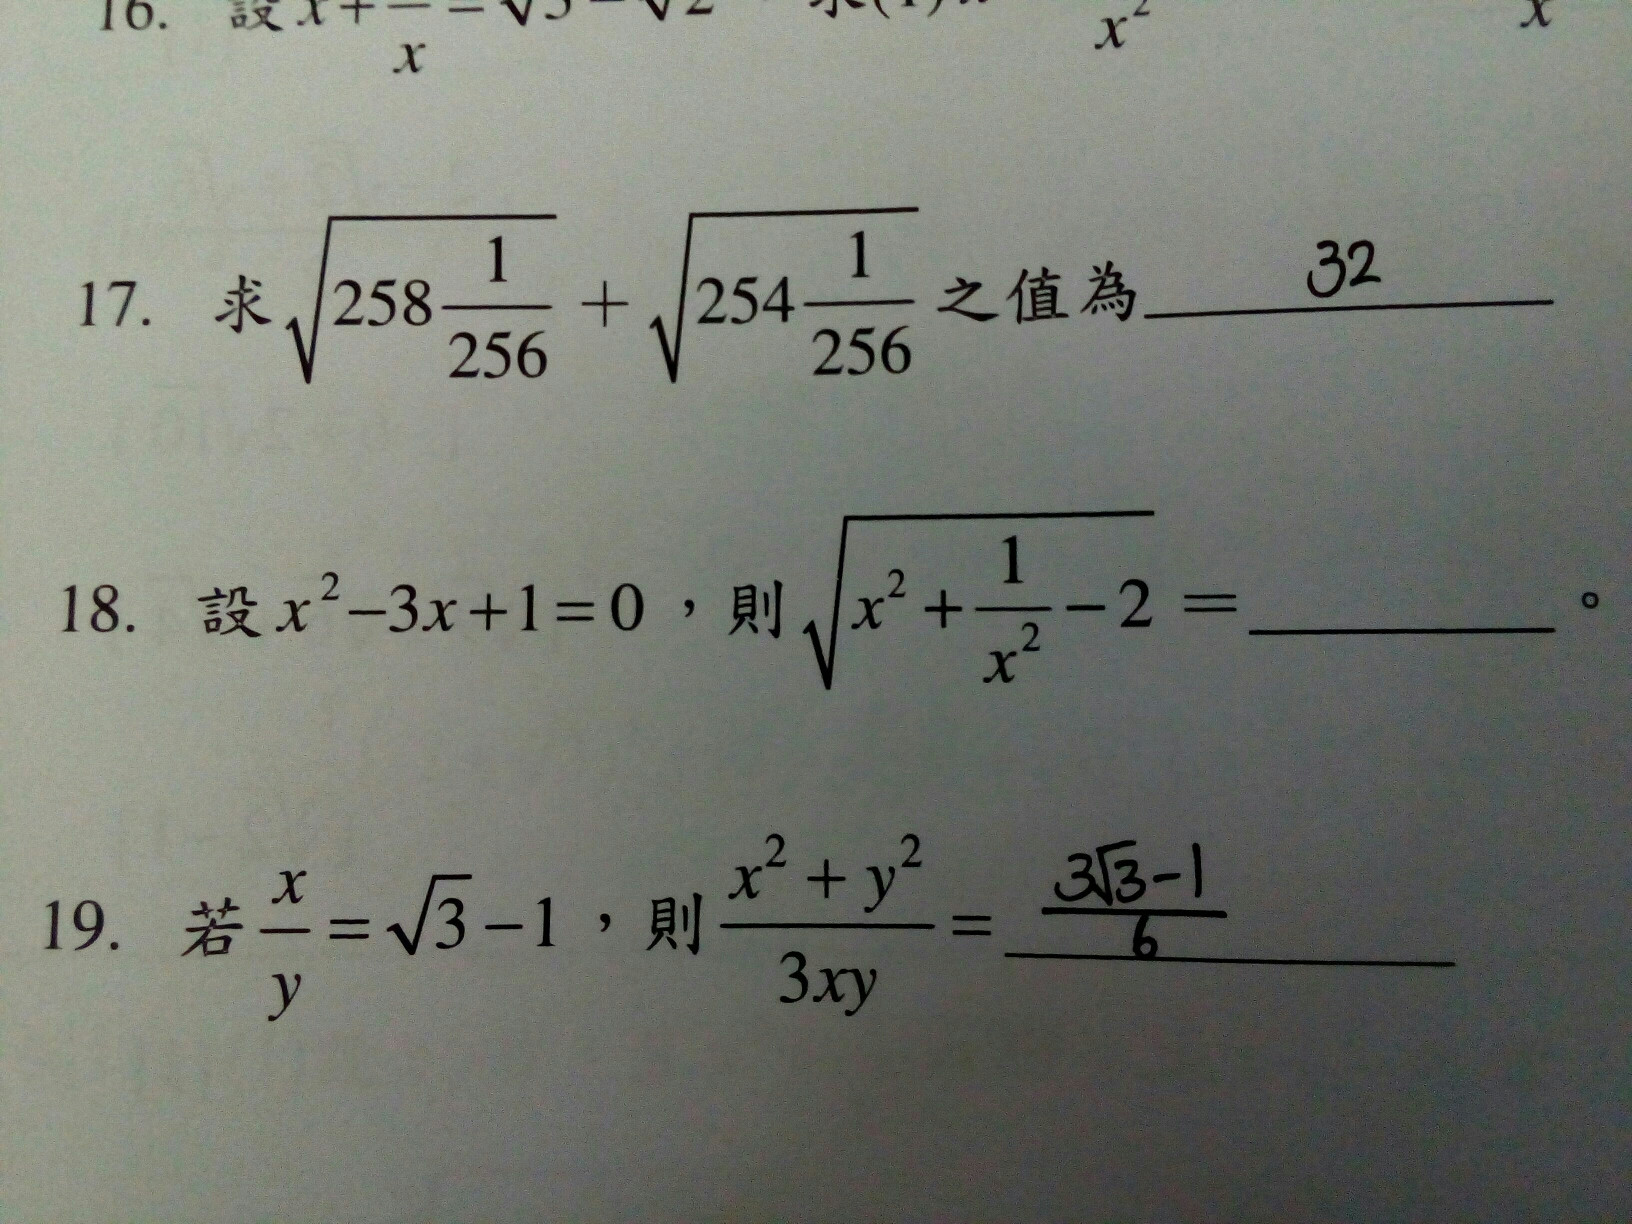 16. 設 x + — = √3 − √2 ，求(1) x²
x
17. 求 √(258 1/256) + √(254 1/256) 之值為 32
18. 設 x² − 3x + 1 = 0 ，則 √(x² + 1/x² − 2) = ______ 。
19. 若 x/y = √3 − 1 ，則 (x² + y²)/(3xy) = (3√3 − 1)/6